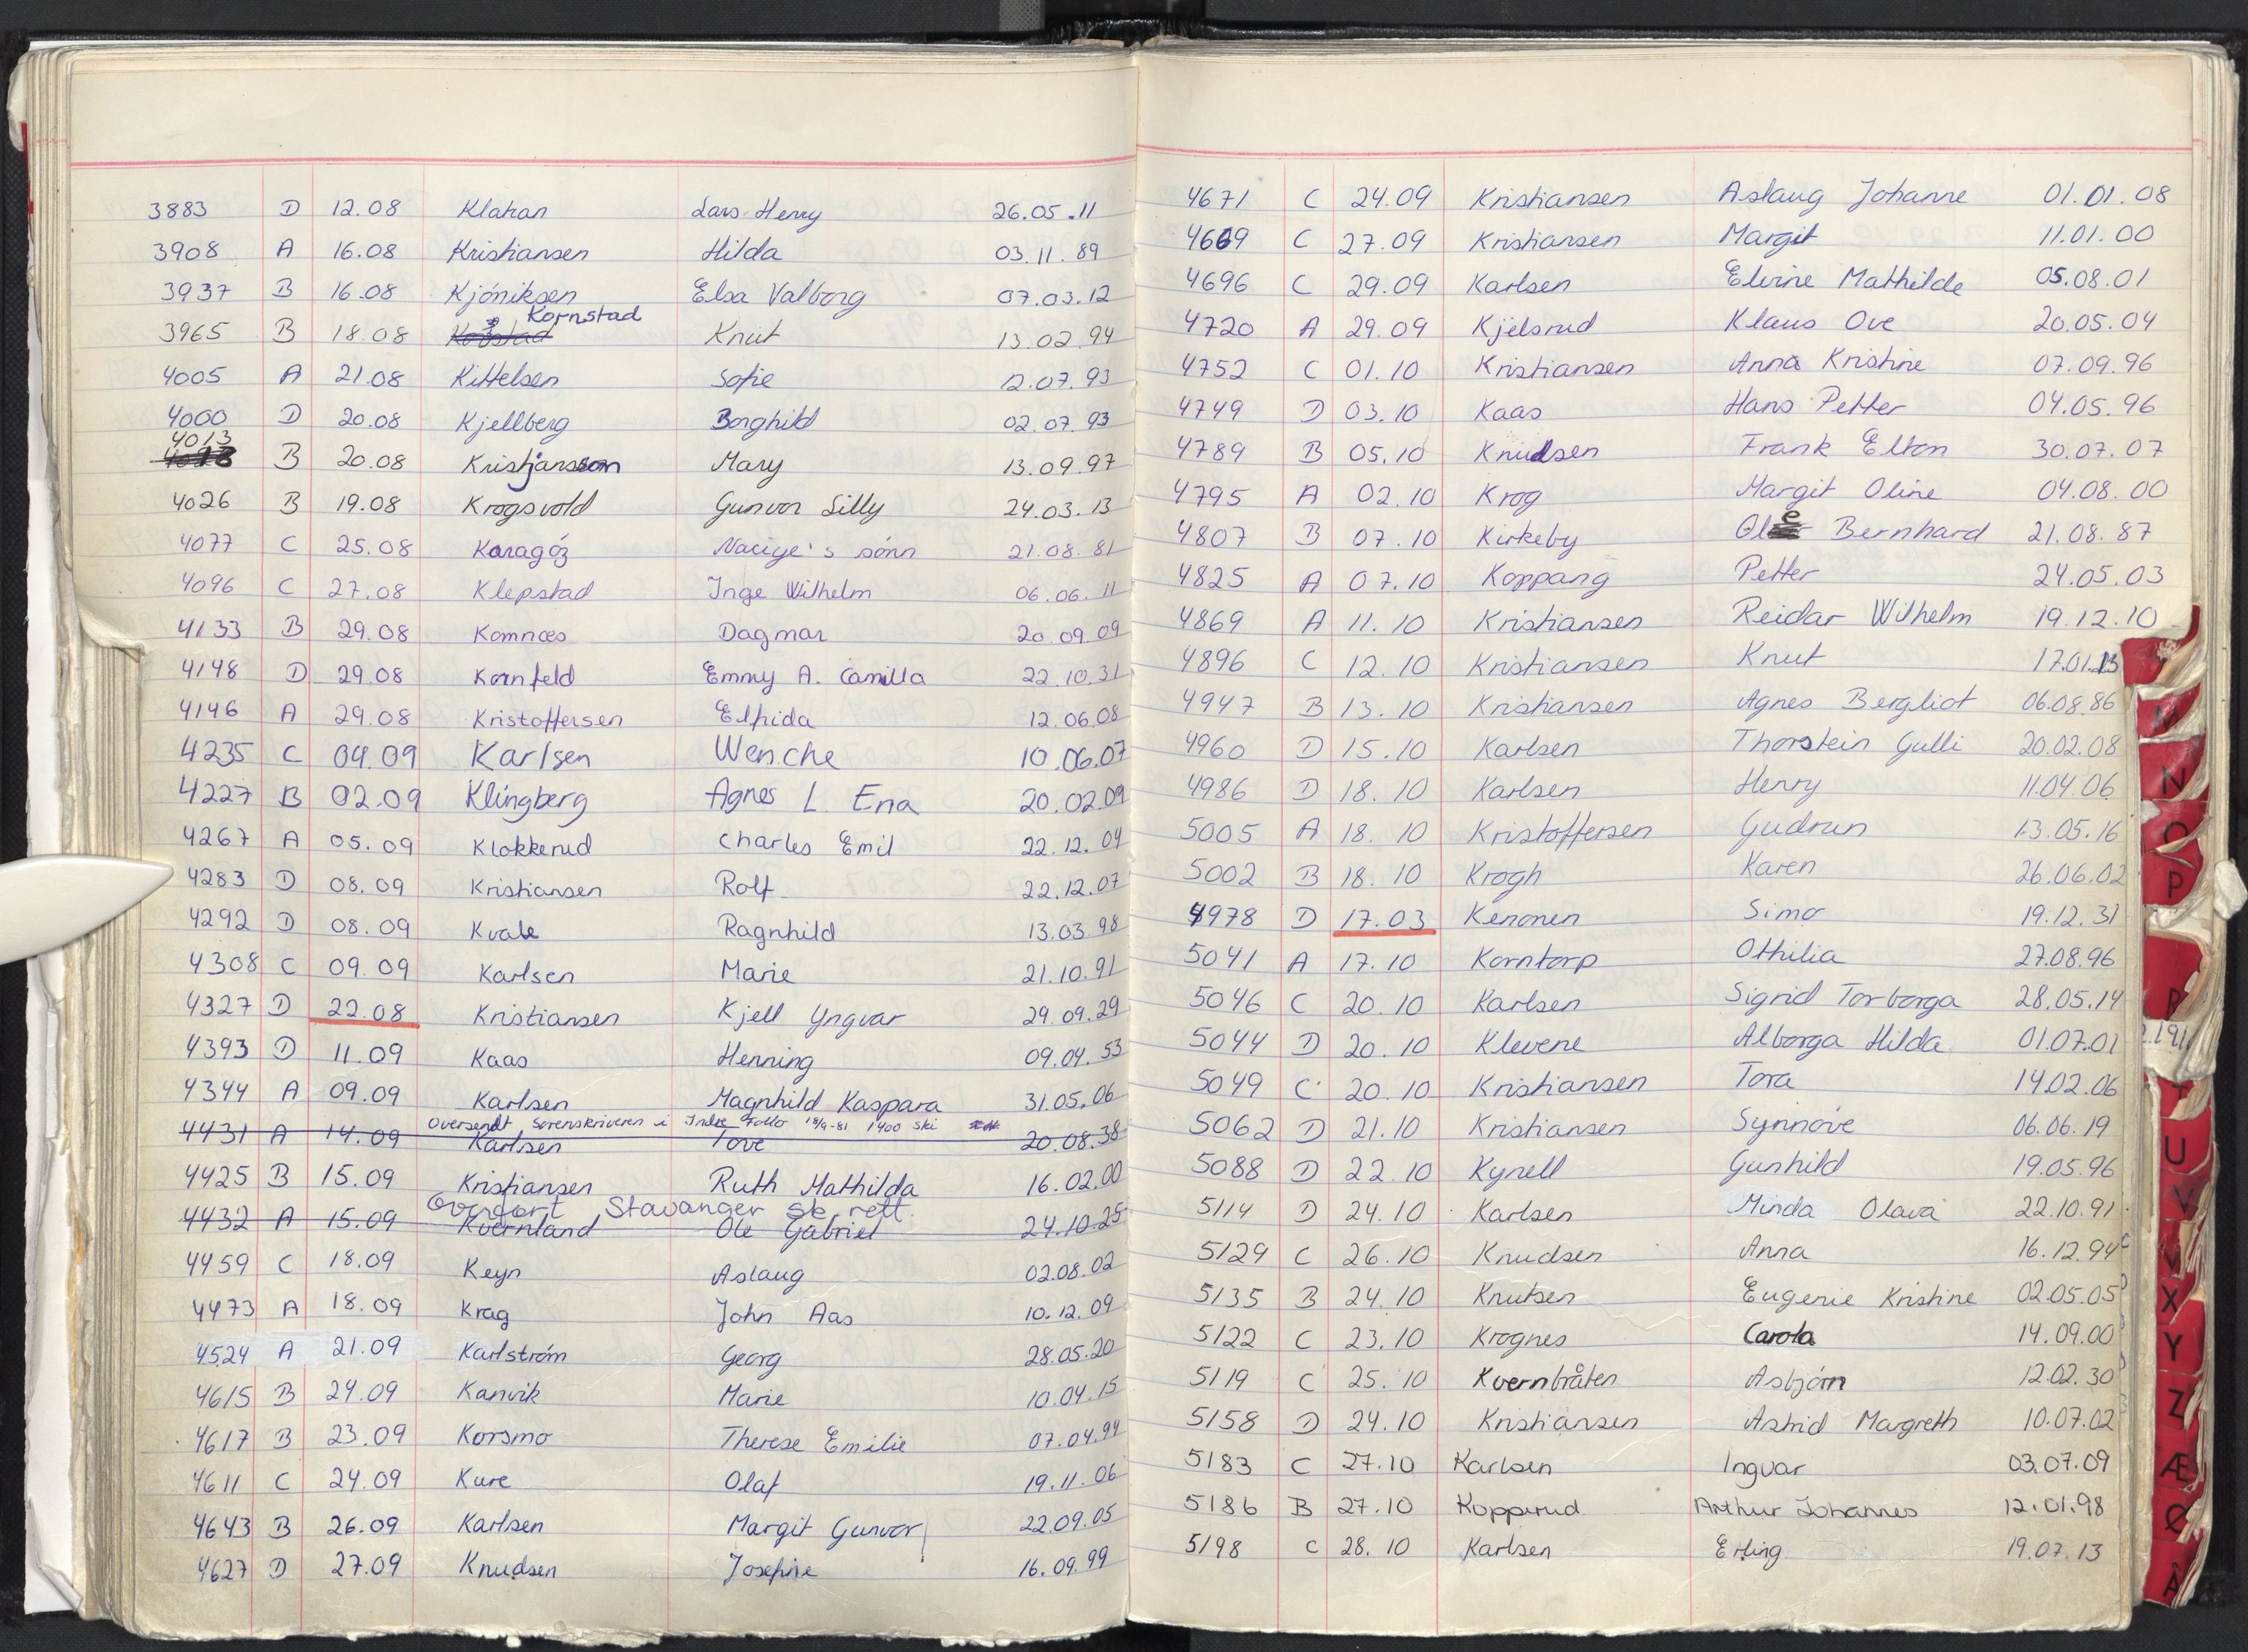 3883 D 12.08 Klakan Lars Henry 26.05.11
3908 A 16.08 Kristiansen Hilda 03.11.89
3937 B 16.08 Kjóniksen Elsa Valborg 07.03.12
Kornstad
3965 B 18.08 Knut 13.02.94
4005 A 21.08 Kittelsen Sofie 12.07.93
4000 D 20.08 Kjellberg Borghild 02.07.93
4013
B 20.08 Kristjansson Mary 13.09.97
4026 B 19.08 Krogsvold Gunvor Lilly 24.03.13
4077 C 25.08 Karagóz Naciye's sónn 21.08.81
4096 C 27.08 Klepstad Inge Wilhelm 06.06.11
4133 B 29.08 Komnæs Dagmar 20.09.09
4148 D 29.08 Kornfeld Emmy A. Camilla 22.10.31
4146 A 29.08 Kristoffersen Elfrida 12.06.08
4235 C 04.09 Karlsen Wenche 10.06.07
4227 B 02.09 Klingberg Agnes L. Ena 20.02.09
4267 A 05.09 Klokkerud Charles Emil 22.12.04
4283 D 08.09 Kristiansen Rolf 22.12.07
4292 D 08.09 Kvale Ragnhild 13.03.98
4308 C 09.09 Karlsen Marie 21.10.91
4327 D 22.08 Kristiansen Kjell Yngvar 29.09.29
4393 D 11.09 Kaas Henning 09.04.53
4344 A 09.09 Karlsen Magnhild Kaspara 31.05.06
Oversendt Sorenskriveren i Indre Follo 18/9-81 1400 Ski
4431 A 14.09 Karlsen Tove 20.08.38
4425 B 15.09 Kristiansen Ruth Mathilda 16.02.00
Overført Stavanger sk. rett.
4432 A 15.09 Kvernland Ole Gabriel 24.10.25
4459 C 18.09 Keyn Aslaug 02.08.02
4473 A 18.09 Krag John Aas 10.12.09
4524 A 21.09 Karlstróm Georg 28.05.20
4615 B 24.09 Kanvik Marie 10.04.15
4617 B 23.09 Korsmo Therese Emilie 07.04.94
4611 C 24.09 Kure Olaf 19.11.06
4643 B 26.09 Karlsen Margit Gunvor 22.09.05
4627 D 27.09 Knudsen Josefine 16.09.99
4671 C 24.09 Kristiansen Aslaug Johanne 01.01.08
4669 C 27.09 Kristiansen Margit 11.01.00
4696 C 29.09 Karlsen Elvine Mathilde 05.08.01
4720 A 29.09 Kjelsrud Klaus Ove 20.05.04
4752 C 01.10 Kristiansen Anna Kristine 07.09.96
4749 D 03.10 Kaas Hans Petter 04.05.96
4789 B 05.10 Knudsen Frank Elton 30.07.07
4795 A 02.10 Krog Margit Oline 04.08.00
4807 B 07.10 Kirkeby Ole Bernhard 21.08.87
4825 A 07.10 Koppang Petter 24.05.03
4869 A 11.10 Kristiansen Reidar Wilhelm 19.12.10
4896 C 12.10 Kristiansen Knut 17.01.13
4947 B 13.10 Kristiansen Agnes Bergliot 06.08.86
4960 D 15.10 Karlsen Thorstein Gulli 20.02.08
4986 D 18.10 Karlsen Henry 11.04.06
5005 A 18.10 Kristoffersen Gudrun 13.05.16
5002 B 18.10 Krogh Karen 26.06.02
4978 D 17.03 Kenonen Simo 19.12.31
5041 A 17.10 Korntorp Othilia 27.08.96
5046 C 20.10 Karlsen Sigrid Torborga 28.05.14
5044 D 20.10 Klevene Alborga Hilda 01.07.01
5049 C 20.10 Kristiansen Tora 14.02.06
5062 D 21.10 Kristiansen Synnóve 06.06.19
5088 D 22.10 Kynell Gunhild 19.05.96
5114 D 24.10 Karlsen Minda Olava 22.10.91
5129 C 26.10 Knudsen Anna 16.12.94
5135 B 24.10 Knutsen Eugenie Kristine 02.05.05
5122 C 23.10 Krognes Carola 14.09.00
5119 C 25.10 Kvernbråten Asbjórn 12.02.30
5158 D 24.10 Kristiansen Astrid Margreth 10.07.02
5183 C 27.10 Karlsen Ingvar 03.07.09
5186 B 27.10 Kopperud Arthur Johannes 12.01.98
5198 C 28.10 Karlsen Erling 19.07.13
N
O
P
R
T
U
V
W
X
Y
Z
Æ
Ø
Å